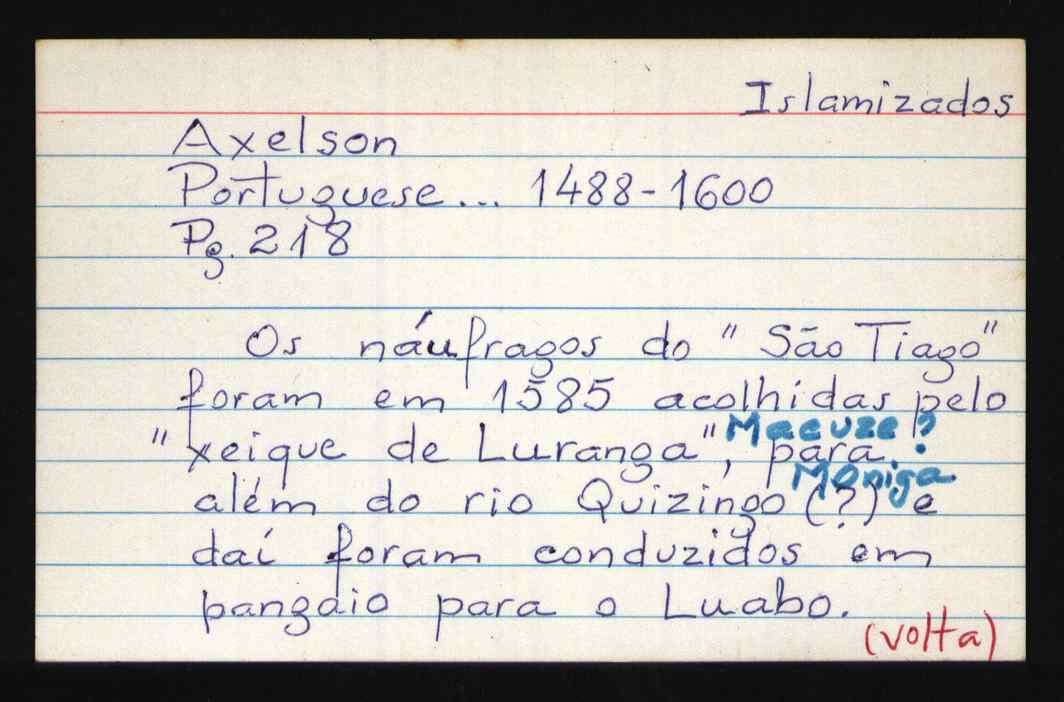 Islamizados
Axelson
Portuguese... 1488-1600
Pg. 218
Os náufragos do "São Tiago"
foram em 1585 acolhidas pelo
"xeique de Luranga", para
Macuze?
além do rio Quizingo (?) e
Môniga
daí foram conduzidos em
pangaio para o Luabo.
(volta)